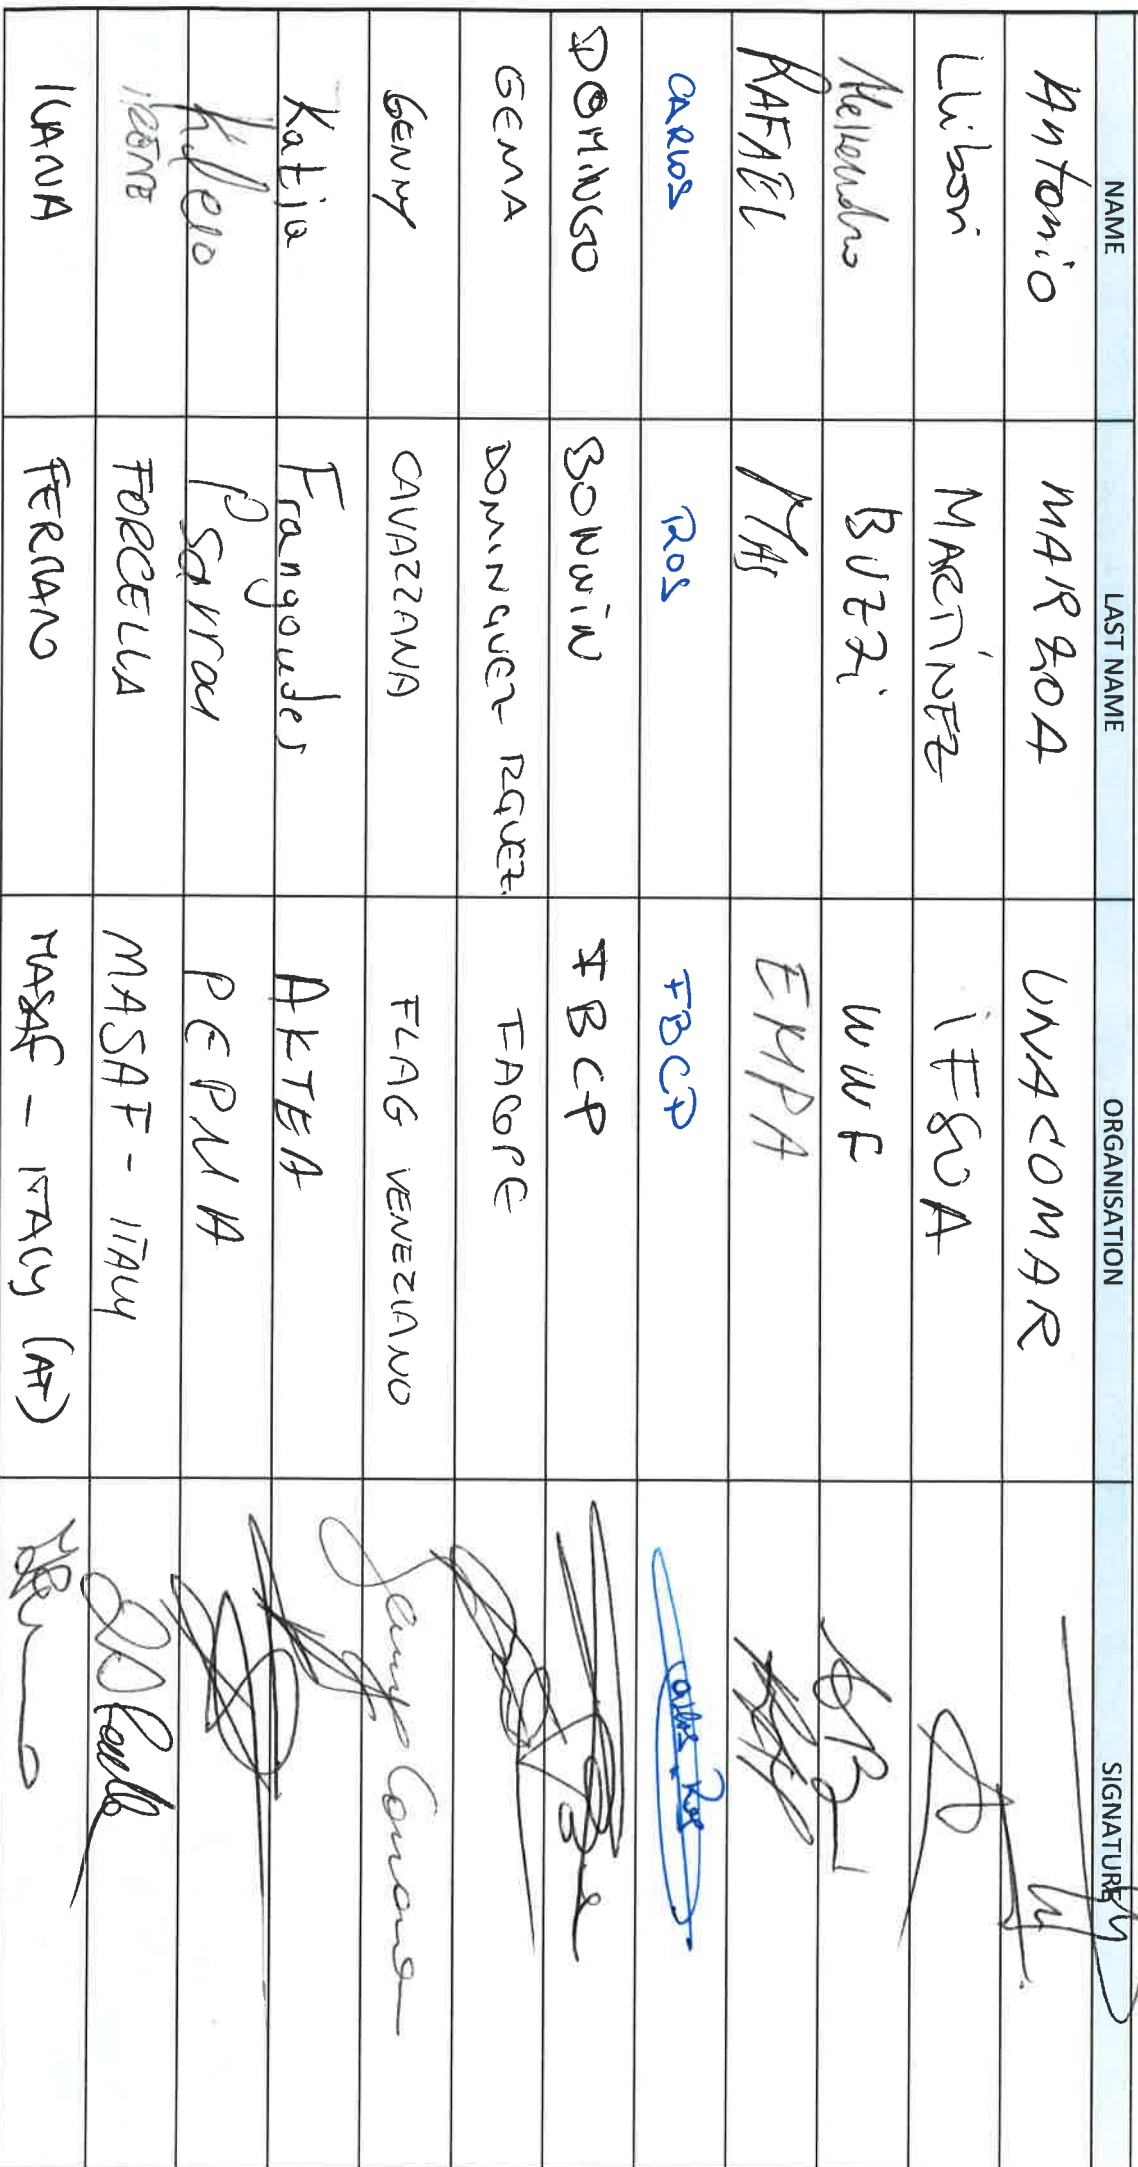 NAME LAST NAME ORGANISATION SIGNATURE
Antonio MARZOA UNACOMAR
Llibori MARTÍNEZ IFSUA
Alessandro BUZZI WWF
RAFAEL MAS EMPA
CARLOS ROS FBCP Carlos Ros
DOMINGO BONNIN FBCP
GEMA DOMINGUEZ RGUEZ. FACOPE
GENNY CAVAZZANA FLAG VENEZIANO
Katja Frangoudes AKTEA
Psarrou PEPMA
IRENE FORCELLA MASAF - ITALY
ILARIA FERRARO MASAF - ITALY (AT)